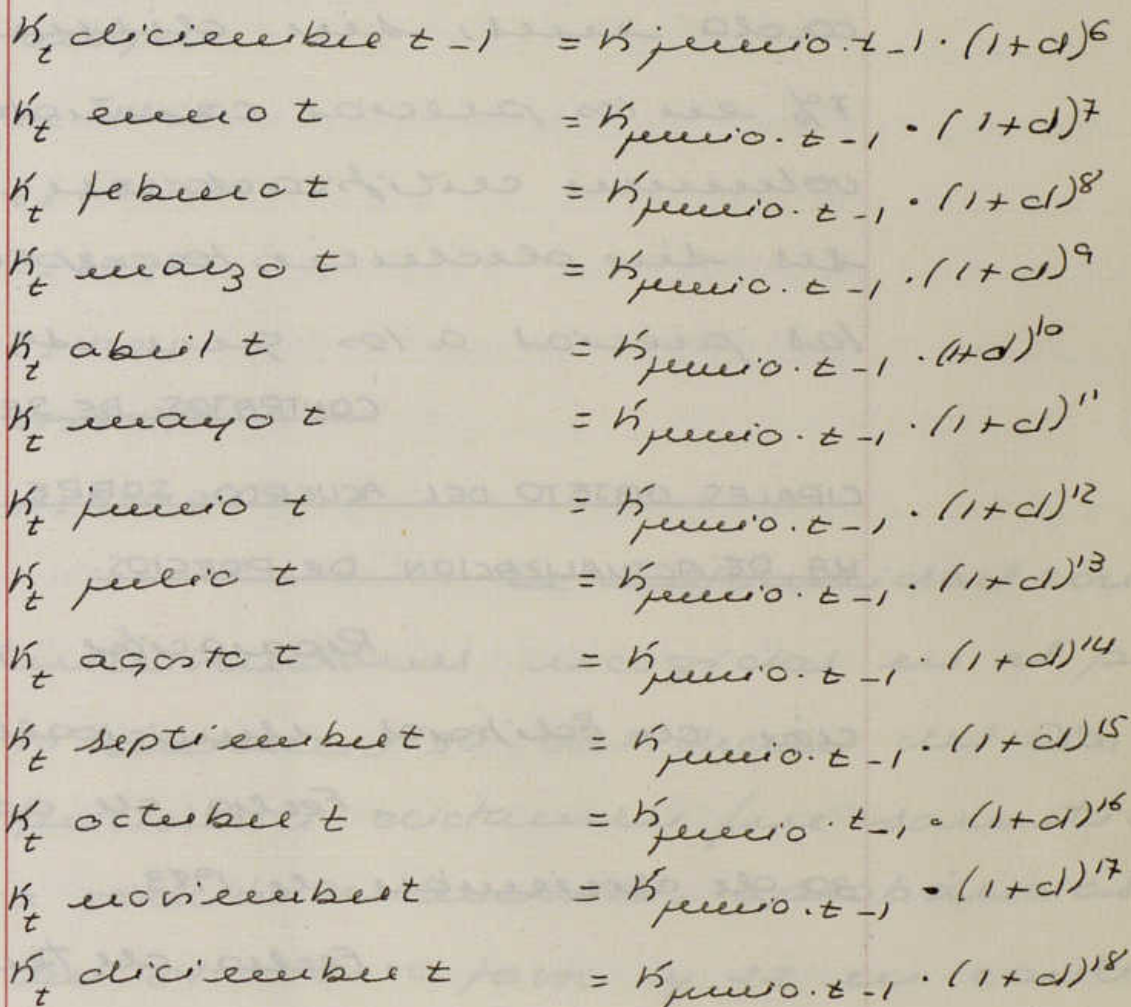 K_t diciembre t-1 = K junio.t-1 . (1+d)^6
K_t enero t = K junio.t-1 . (1+d)^7
K_t febrero t = K junio.t-1 . (1+d)^8
K_t marzo t = K junio.t-1 . (1+d)^9
K_t abril t = K junio.t-1 . (1+d)^10
K_t mayo t = K junio.t-1 . (1+d)^11
K_t junio t = K junio.t-1 . (1+d)^12
K_t julio t = K junio.t-1 . (1+d)^13
K_t agosto t = K junio.t-1 . (1+d)^14
K_t septiembre t = K junio.t-1 . (1+d)^15
K_t octubre t = K junio.t-1 . (1+d)^16
K_t noviembre t = K junio.t-1 . (1+d)^17
K_t diciembre t = K junio.t-1 . (1+d)^18